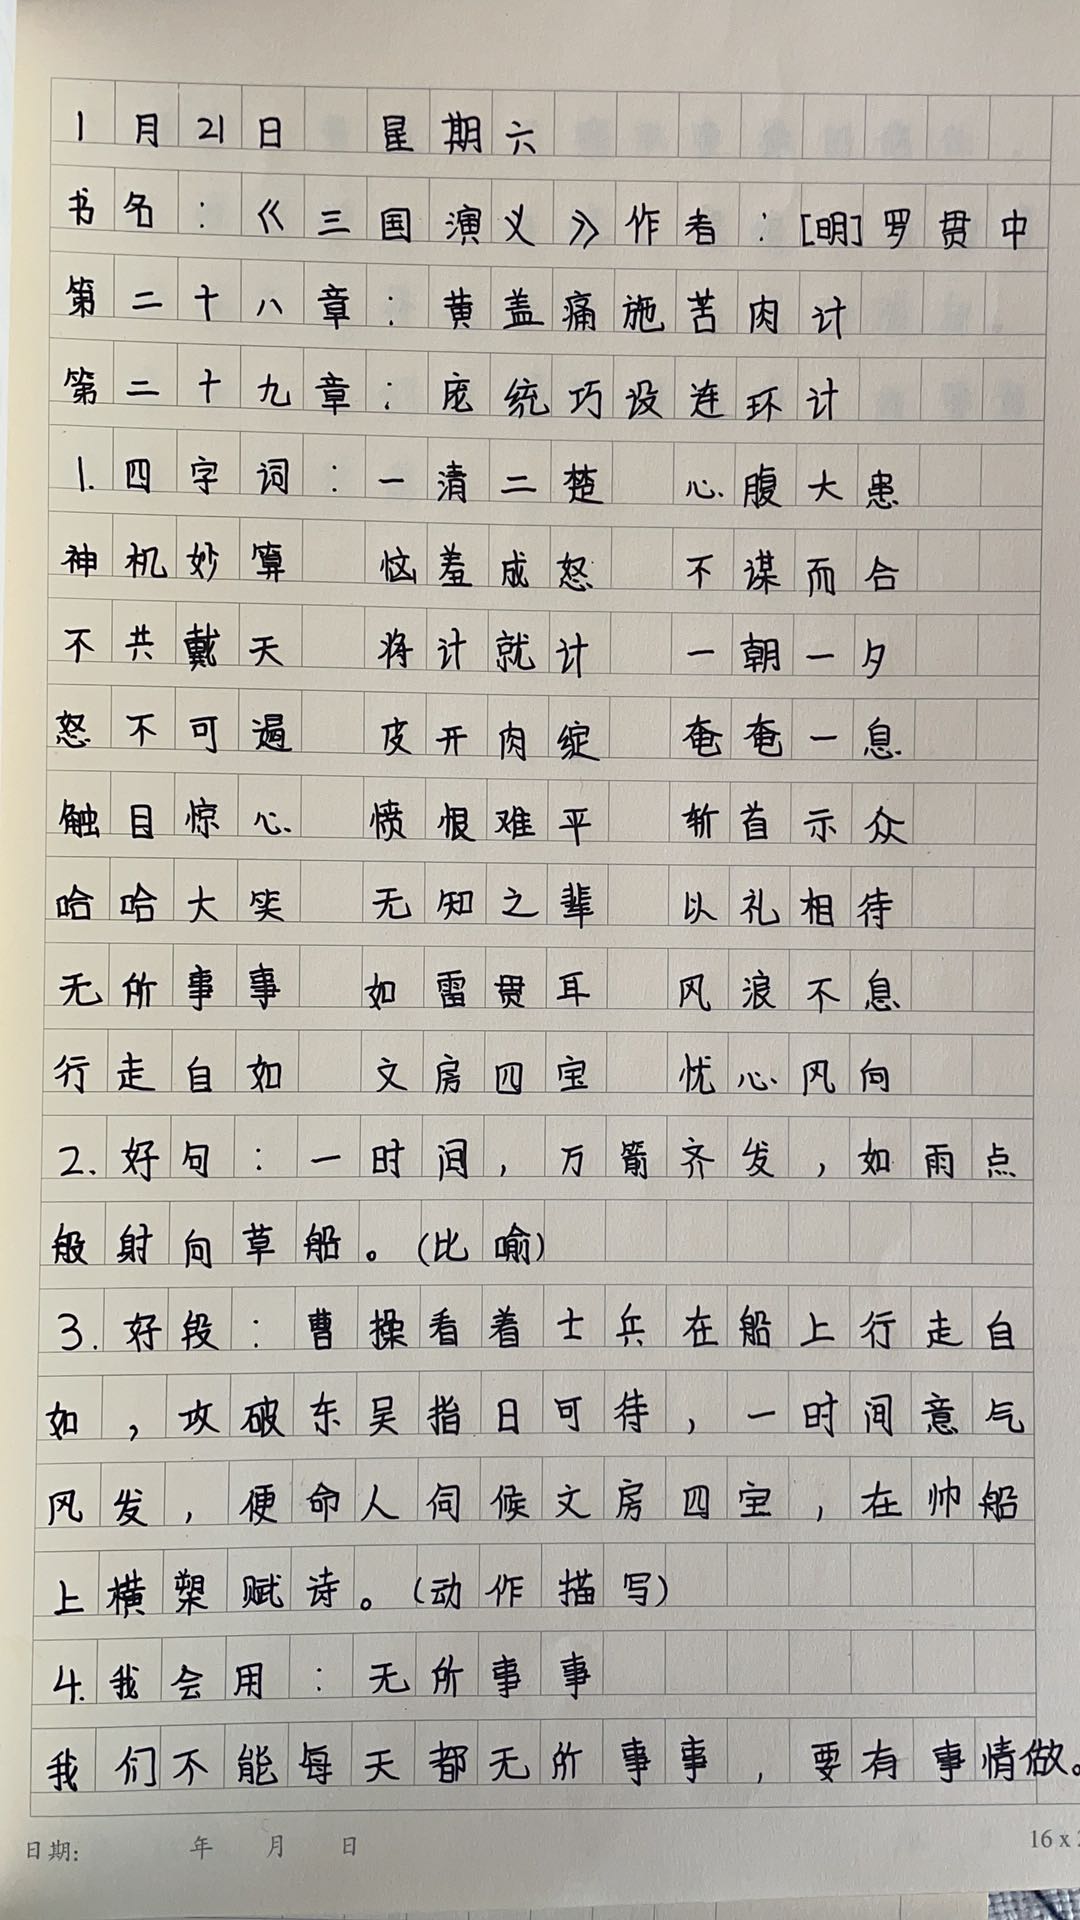 1月21日 星期六
书名：《三国演义》作者：[明]罗贯中
第二十八章：黄盖痛施苦肉计
第二十九章：庞统巧设连环计
1.四字词：一清二楚 心腹大患
神机妙算 恼羞成怒 不谋而合
不共戴天 将计就计 一朝一夕
怒不可遏 皮开肉绽 奄奄一息
触目惊心 愤恨难平 斩首示众
哈哈大笑 无知之辈 以礼相待
无所事事 如雷贯耳 风浪不息
行走自如 文房四宝 忧心风向
2.好句：一时间，万箭齐发，如雨点
般射向草船。(比喻)
3.好段：曹操看着士兵在船上行走自
如，攻破东吴指日可待，一时间意气
风发，便命人伺候文房四宝，在帅船
上横槊赋诗。(动作描写)
4.我会用：无所事事
我们不能每天都无所事事，要有事情做。
日期: 年 月 日
16 x